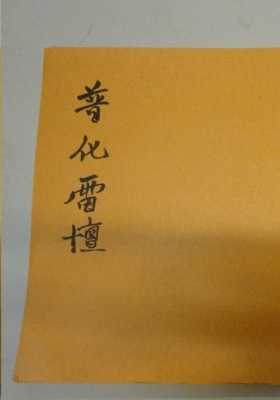 普化雷壇